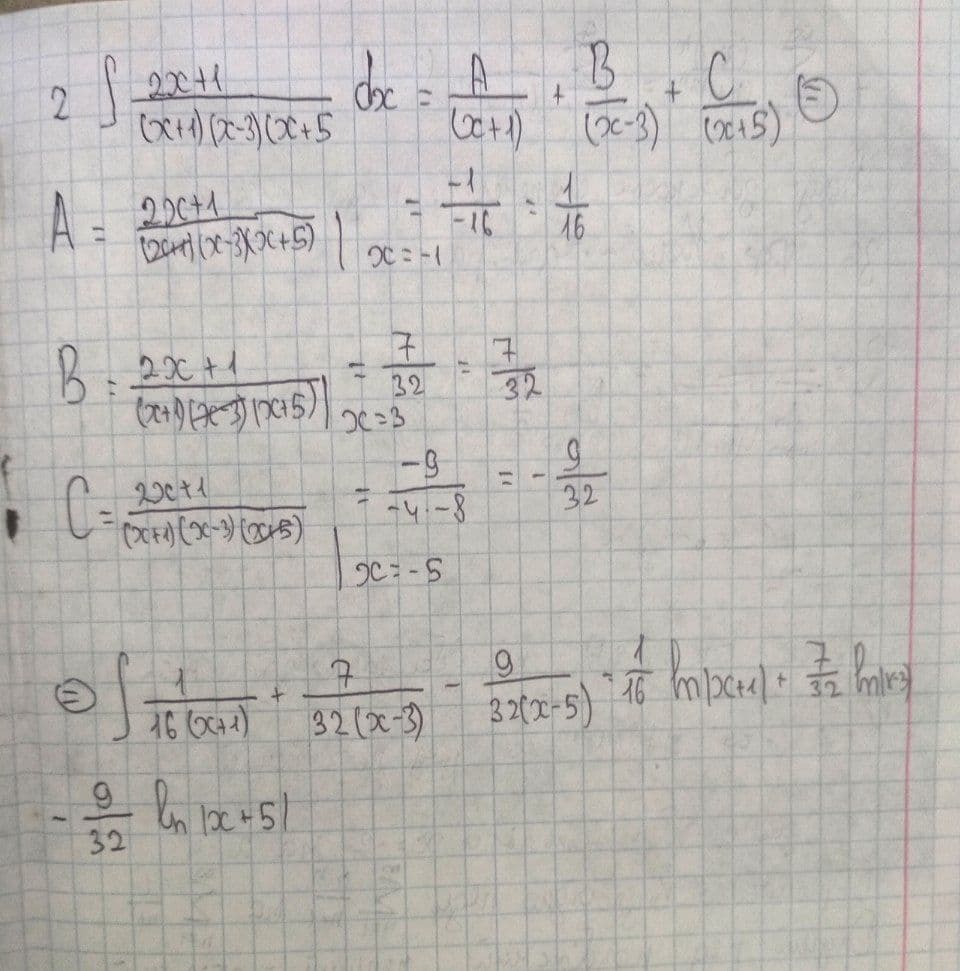 2 ∫ (2x+1)/((x+1)(x-3)(x+5) dx = A/(x+1) + B/(x-3) + C/(x+5) ⊜
A = (2x+1)/((x+1)(x-3)(x+5)) | x=-1 = -1/-16 = 1/16
B = (2x+1)/((x+1)(x-3)(x+5)) | x=3 = 7/32 = 7/32
C = (2x+1)/((x+1)(x-3)(x+5)) | x=-5 = -9/(-4·-8) = -9/32
⊜ ∫ 1/(16(x+1)) + 7/(32(x-3)) - 9/(32(x-5)) = 1/16 ln|x+1| + 7/32 ln|x-3|
- 9/32 ln|x+5|